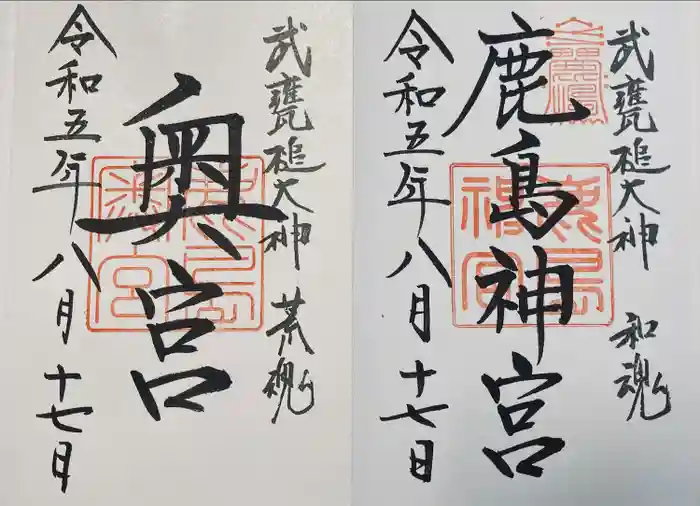 武甕槌大神 和魂
鹿島神宮
令和五年八月十七日
武甕槌大神 荒魂
奥宮
令和五年八月十七日